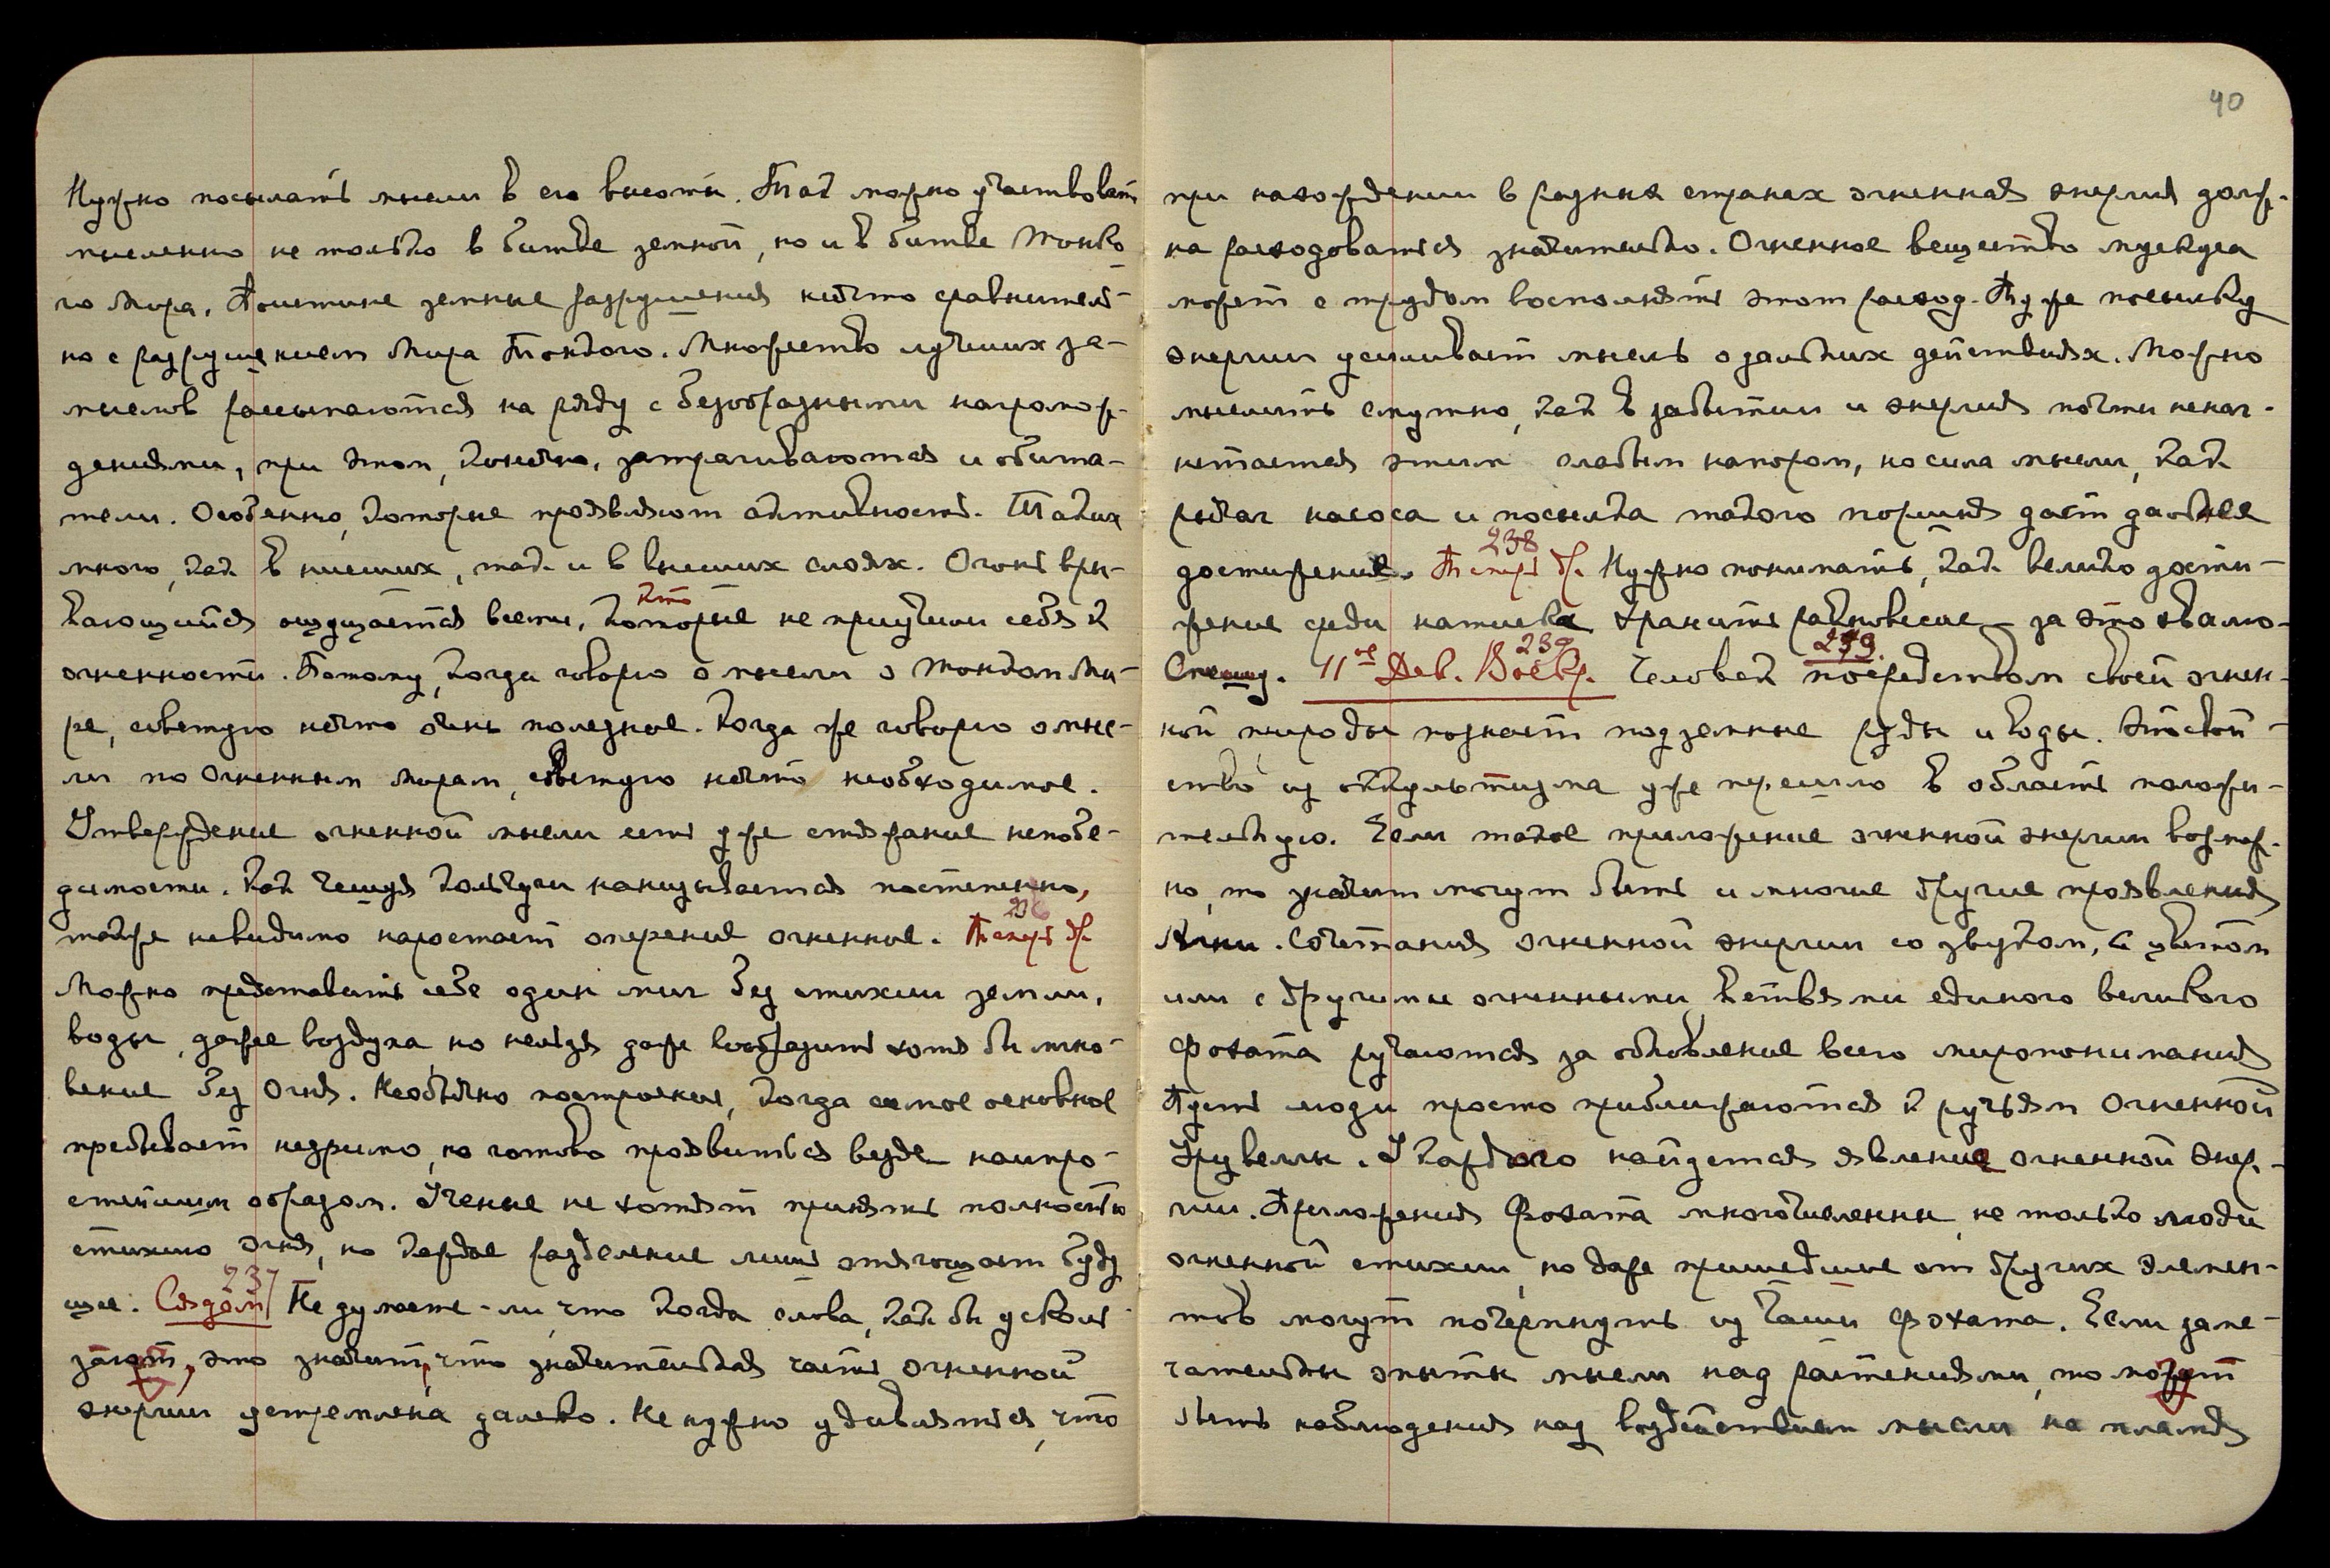 Нужно посылать мысли в его высоты. Так можно участвовать
мысленно не только в битве земной, но и в битве Тонко-
го Мира. Поистине земные разрушения ничто сравнитель-
но с разрушением Мира Тонкого. Множество лучших за-
мыслов рассыпаются на ряду с безобразными нагромож-
дениями, при этом, конечно, затрагиваются и обита-
тели. Особенно, которые проявляют активность. Таких
много, как в низших, так и в высших слоях. Огонь вры-
кто
вающийся ощущается всеми, которые не приучили себя к
огненности. Потому, когда говорю о мысли о Тонком Ми-
ре, советую нечто очень полезное. Когда же говорю о мыс-
ли по Огненным Мирам, советую нечто необходимое.
Утверждение огненной мысли есть уже стяжание непобе-
димости. Как чешуя кольчуги нанизывается постепенно,
236
также невидимо нарастает оперение огненное. Теперь др.
Можно представить себе один миг без стихии земли,
воды, даже воздуха, но нельзя даже вообразить хотя бы мгно-
вение без Огня. Необычно построение, когда самое основное
пребывает незримо, но готово проявиться везде наипро-
стейшим образом. Ученые не хотят принять полностью
стихию Огня, но каждое разделение лишь отягощает буду
237
щее. Сядем/ Не думаете-ли, что когда слова, как бы усколь-
зают, это значит, что значительная часть огненной
энергии устремлена далеко. Не нужно удивляться, что
40
при нахождении в разных странах огненная энергия долж-
на расходоваться значительно. Огненное вещество мускула
может с трудом восполнять этот расход. Ту же посылку
энергии усиливает мысль о дальних действиях. Можно
мыслить смутно, как в забытии и энергия почти не наг-
нетается этим слабым напором, но сила мысли, как
рычаг насоса и посылка такого поршня даст дальнее
238
достижение. Теперь др. Нужно понимать, как велико дости-
жение среди натиска хранить равновесие – за это хвалю.
239 239.
Спешу. 11ое Дек. Воскр. Человек посредством своей огнен-
ной природы познает подземные руды и воды. Это свой-
ство из оккультизма уже перешло в область положи-
тельную. Если такое приложение огненной энергии возмож-
но, то значит могут быть и многие другие проявления
Агни. Сочетания огненной энергии со звуком, с цветом
или с другими огненными ветвями единого великого
Фохата ручаются за обновление всего миропонимания
Пусть люди просто приближаются к ручьям Огненной
Урувеллы. У каждого найдется явление огненной энер-
гии. Приложения Фохата многочисленны, не только люди
огненной стихии, но даже пришедшие от других элемен-
тов могут почерпнуть из чаши Фохата. Если заме-
чательны опыты мысли над растениями, то могут
быть наблюдения над воздействием мысли на пламя